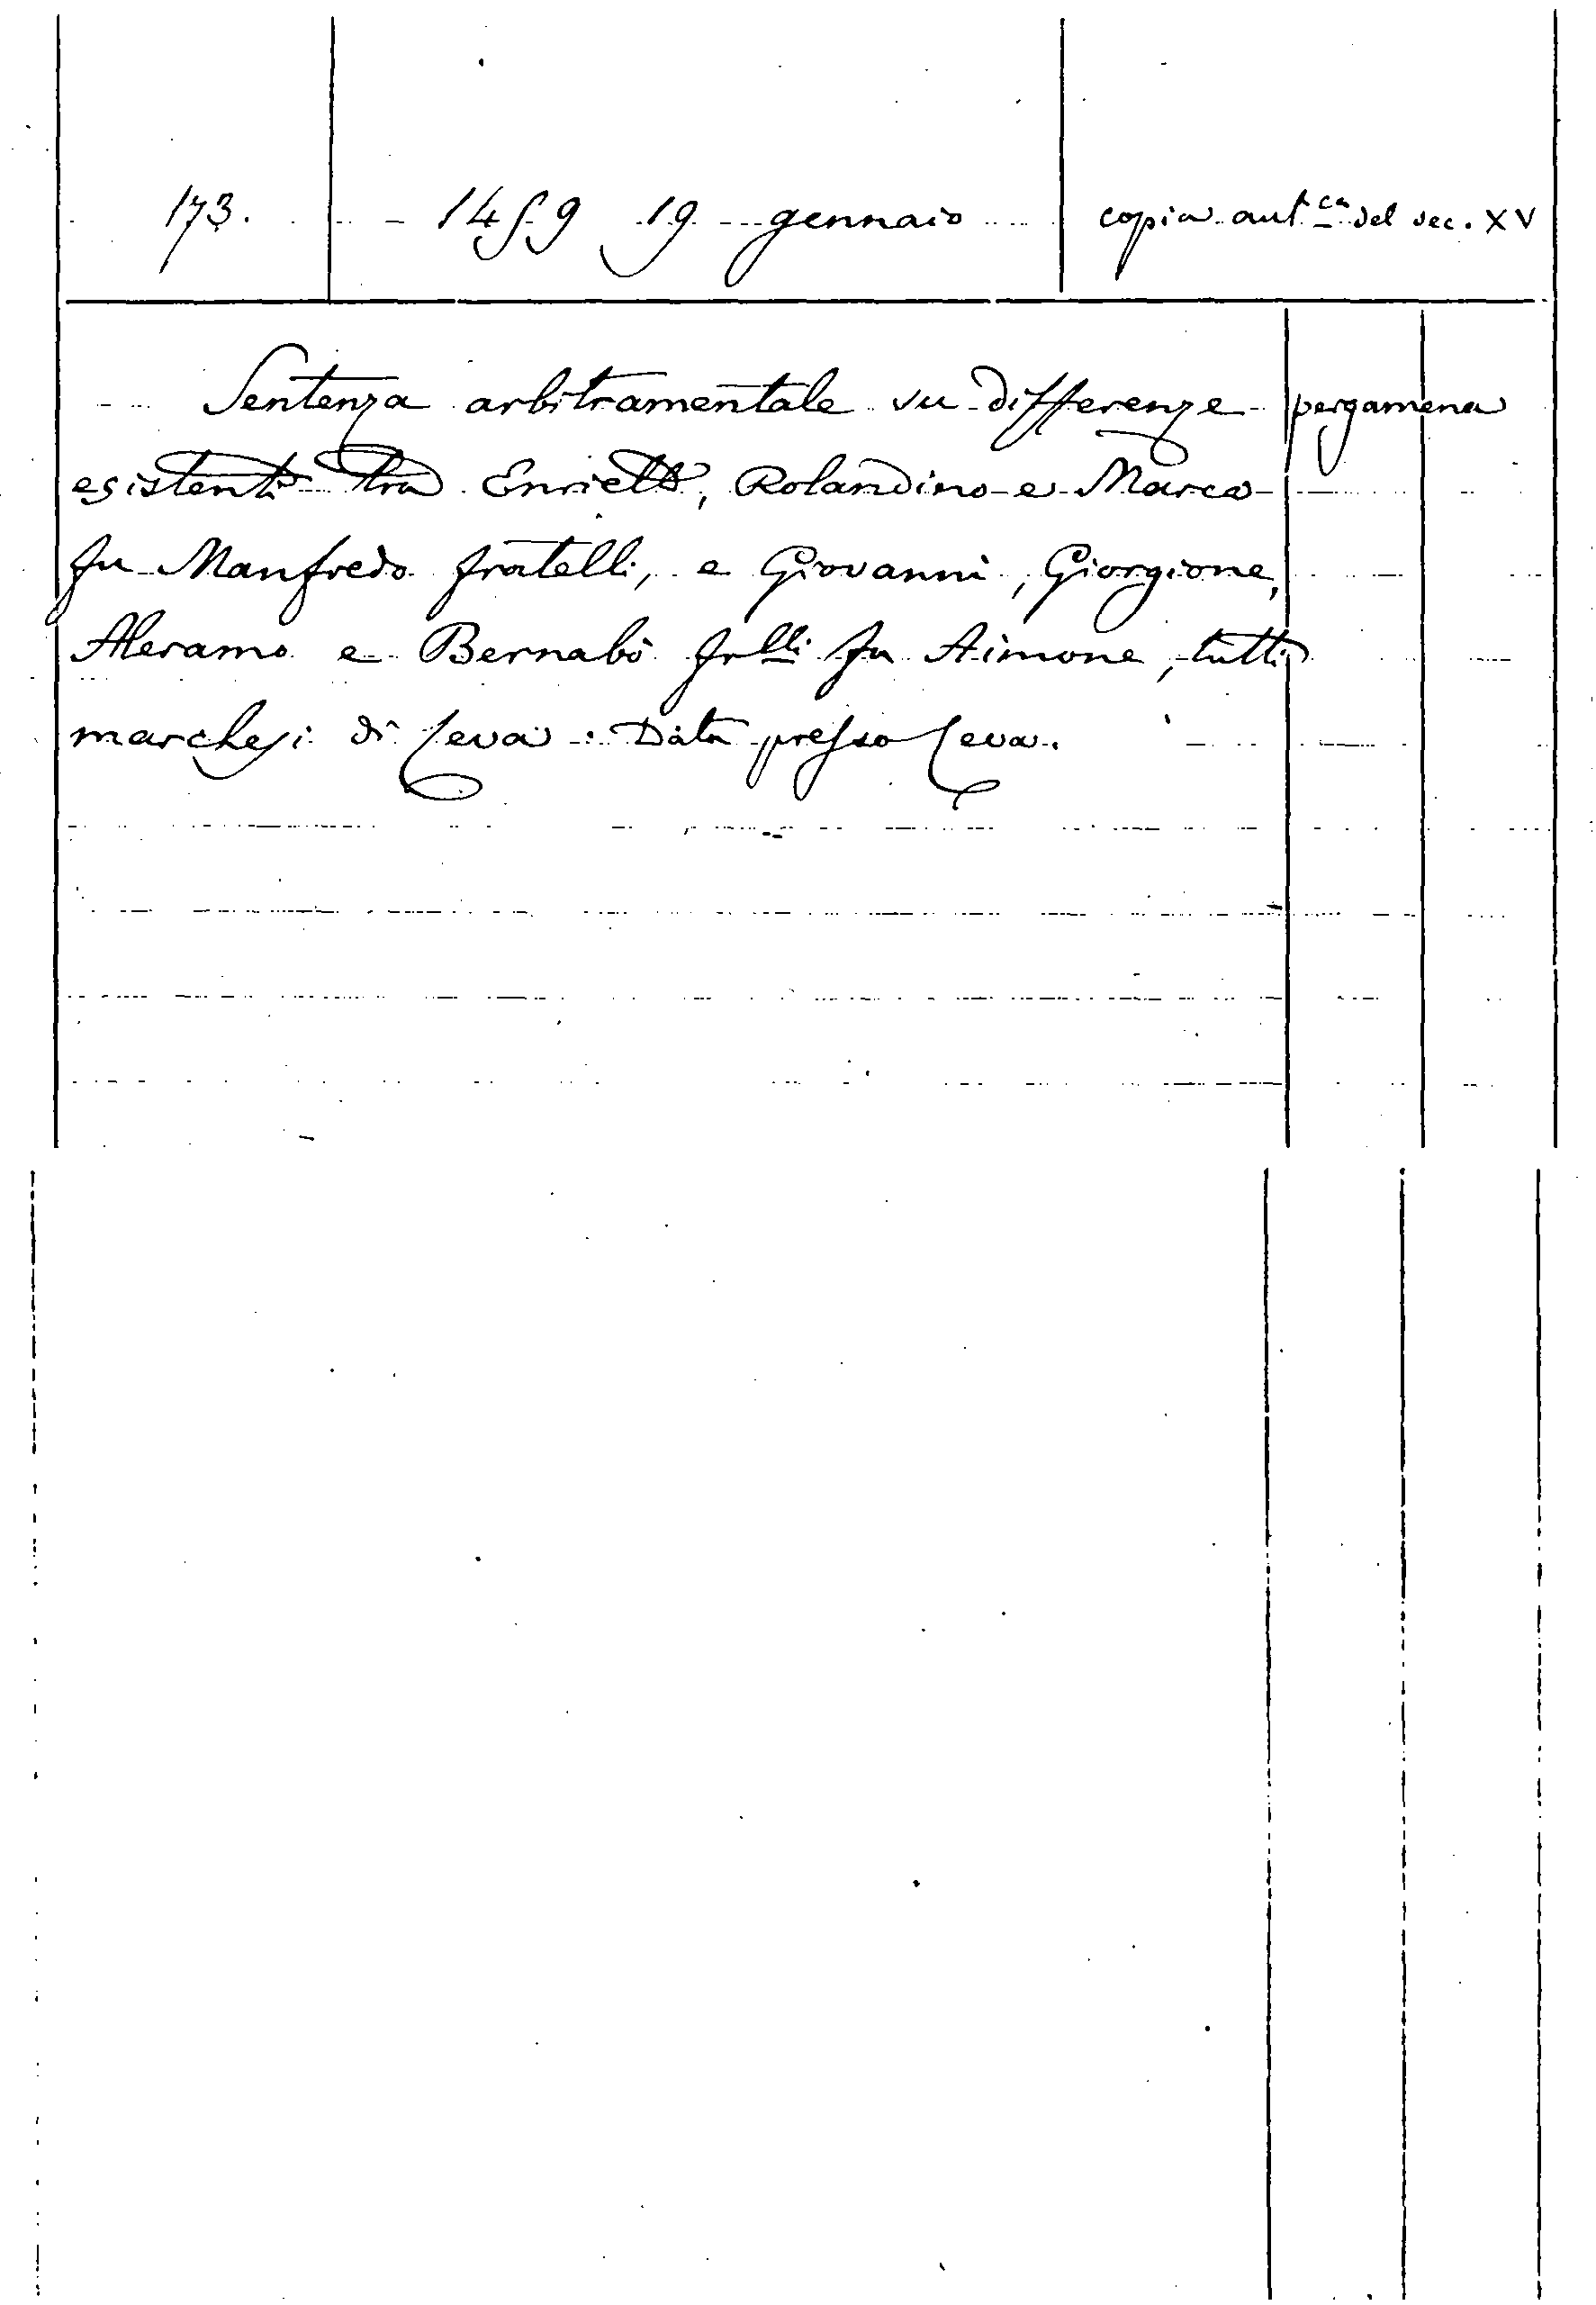 173. 1459 19 gennaio copia aut.ca del sec. XV
Sentenza arbitramentale su differenze pergamena
esistenti tra Enrietto, Rolandino e Marco
fu Manfredo fratelli, e Giovanni, Giorgione,
Aleramo e Bernabò frlli fu Aimone, tutti
marchesi di Ceva. Data presso Ceva.